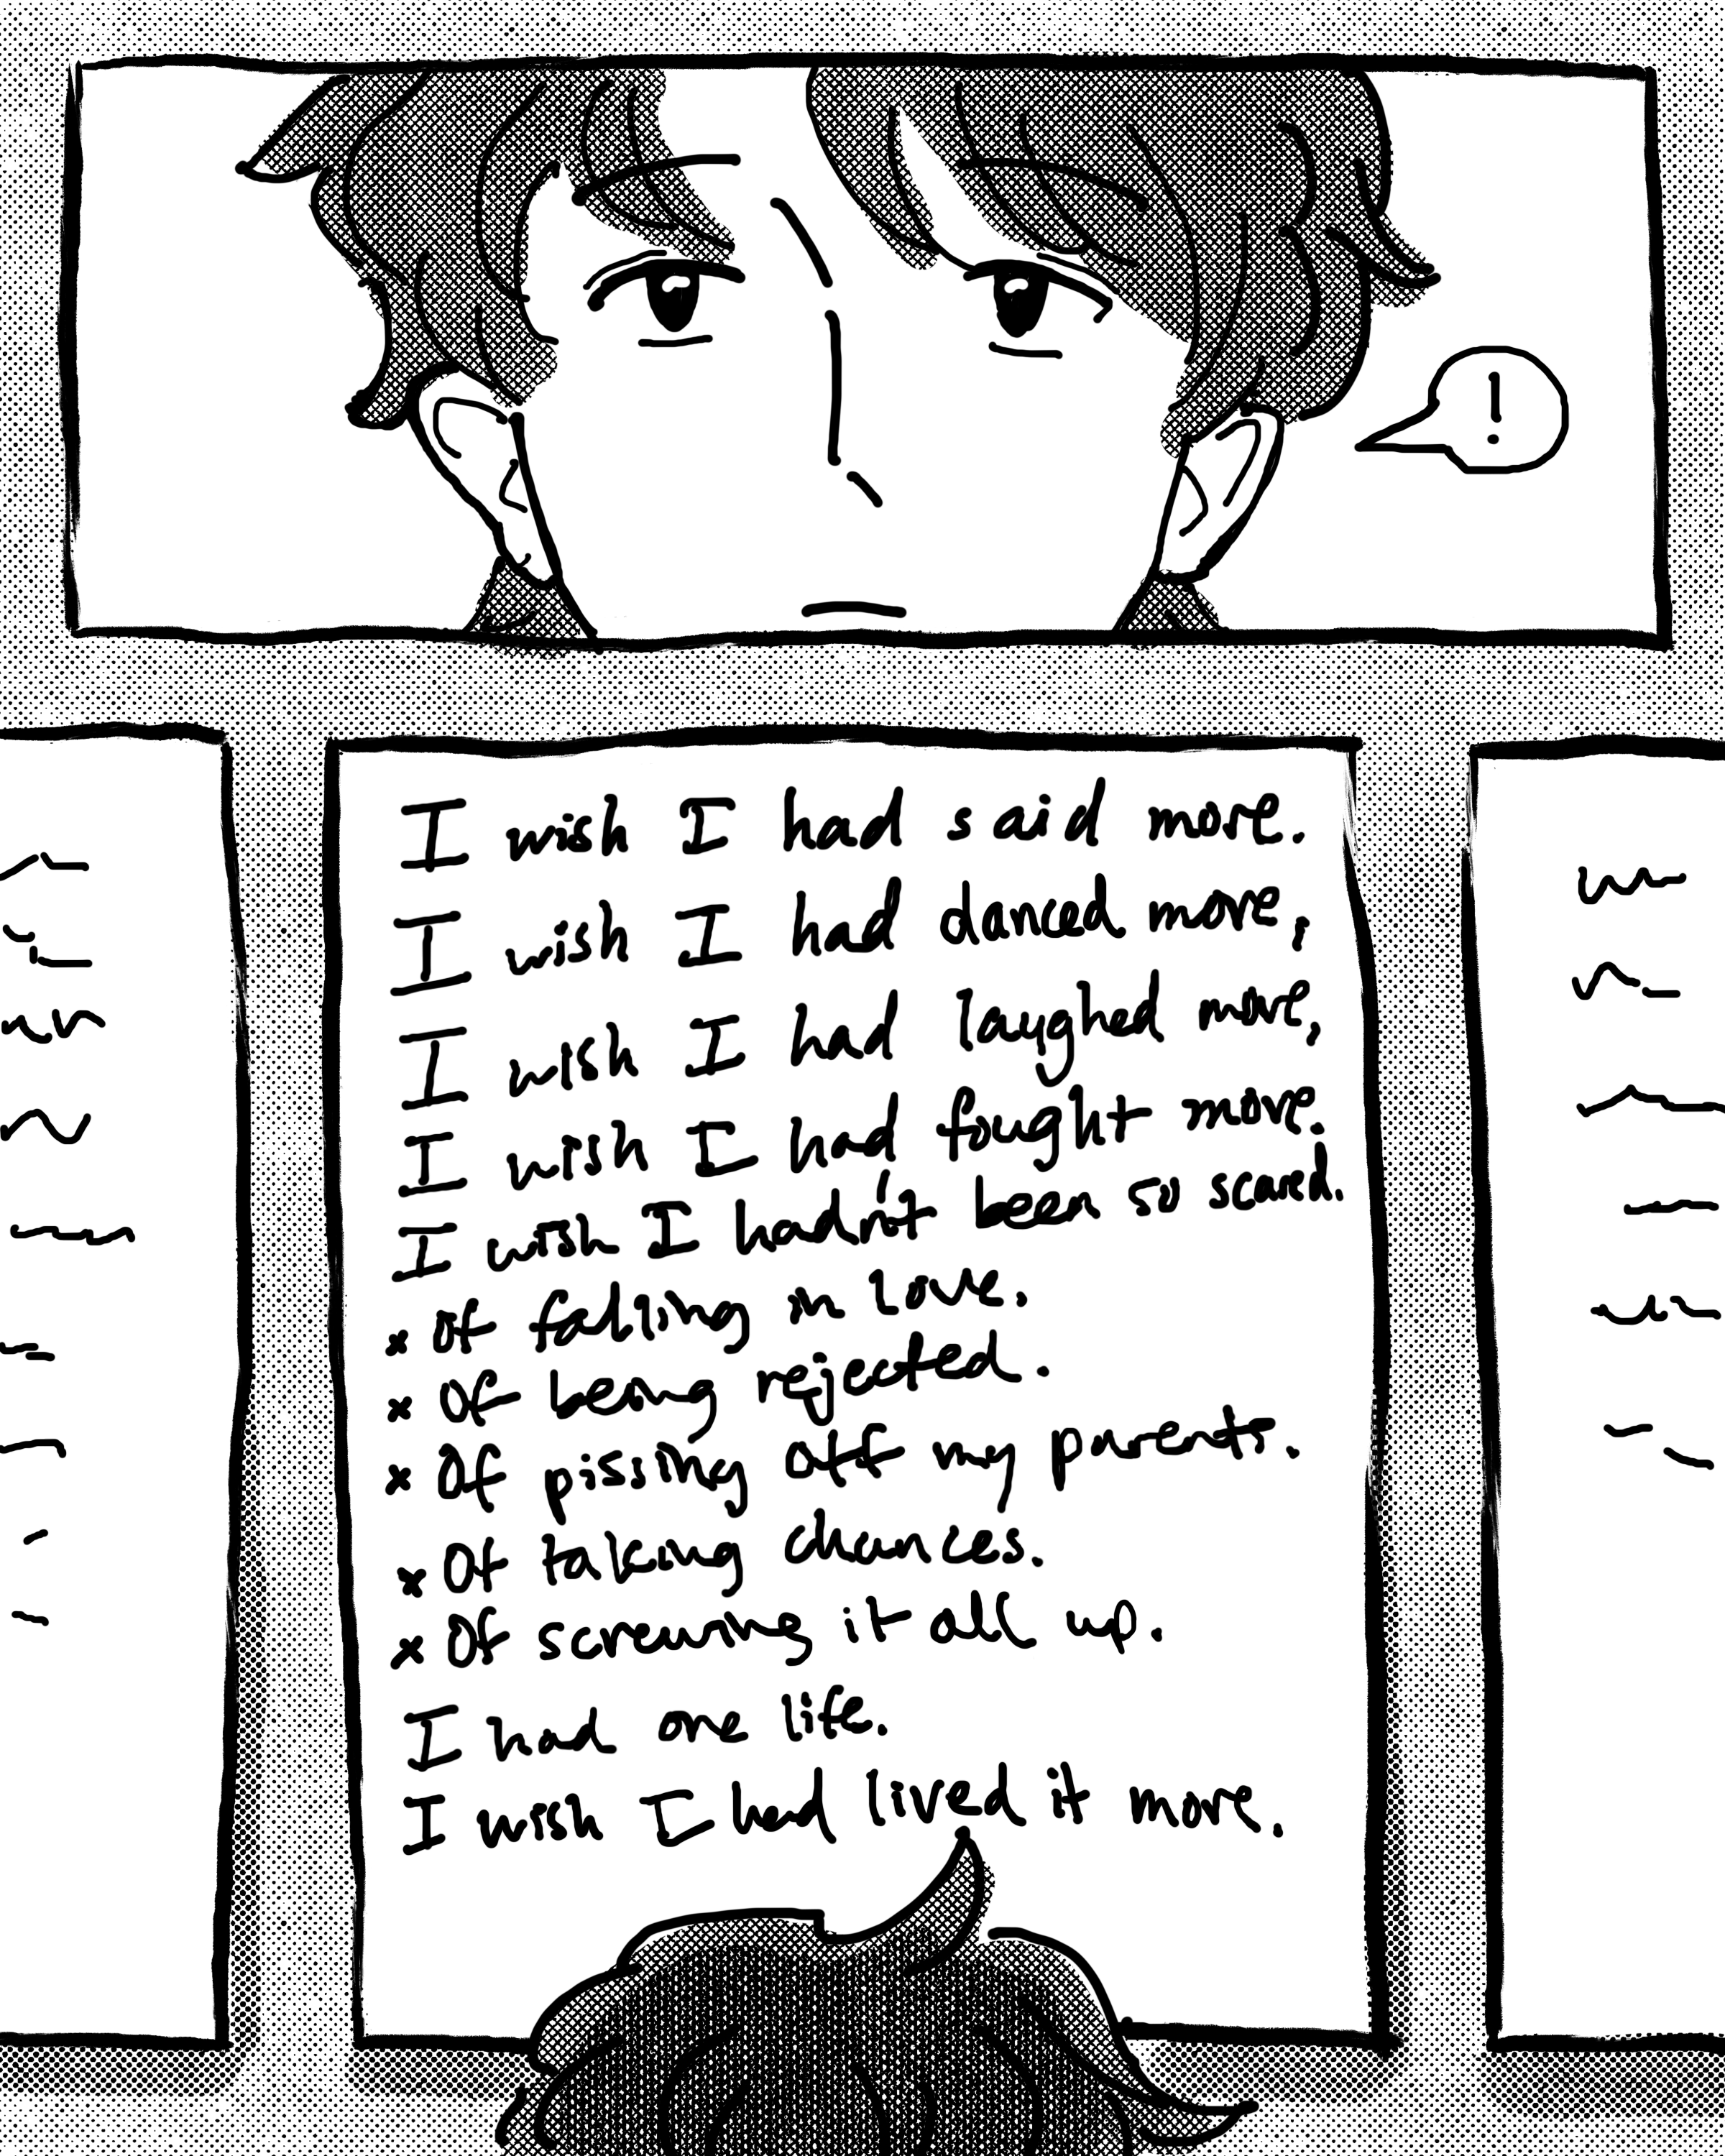 !
I wish I had said more.
I wish I had danced more,
I wish I had laughed more,
I wish I had fought more.
I wish I hadn't been so scared.
x Of falling in love.
x Of being rejected.
x Of pissing off my parents.
x Of taking chances.
x Of screwing it all up.
I had one life.
I wish I had lived it more.